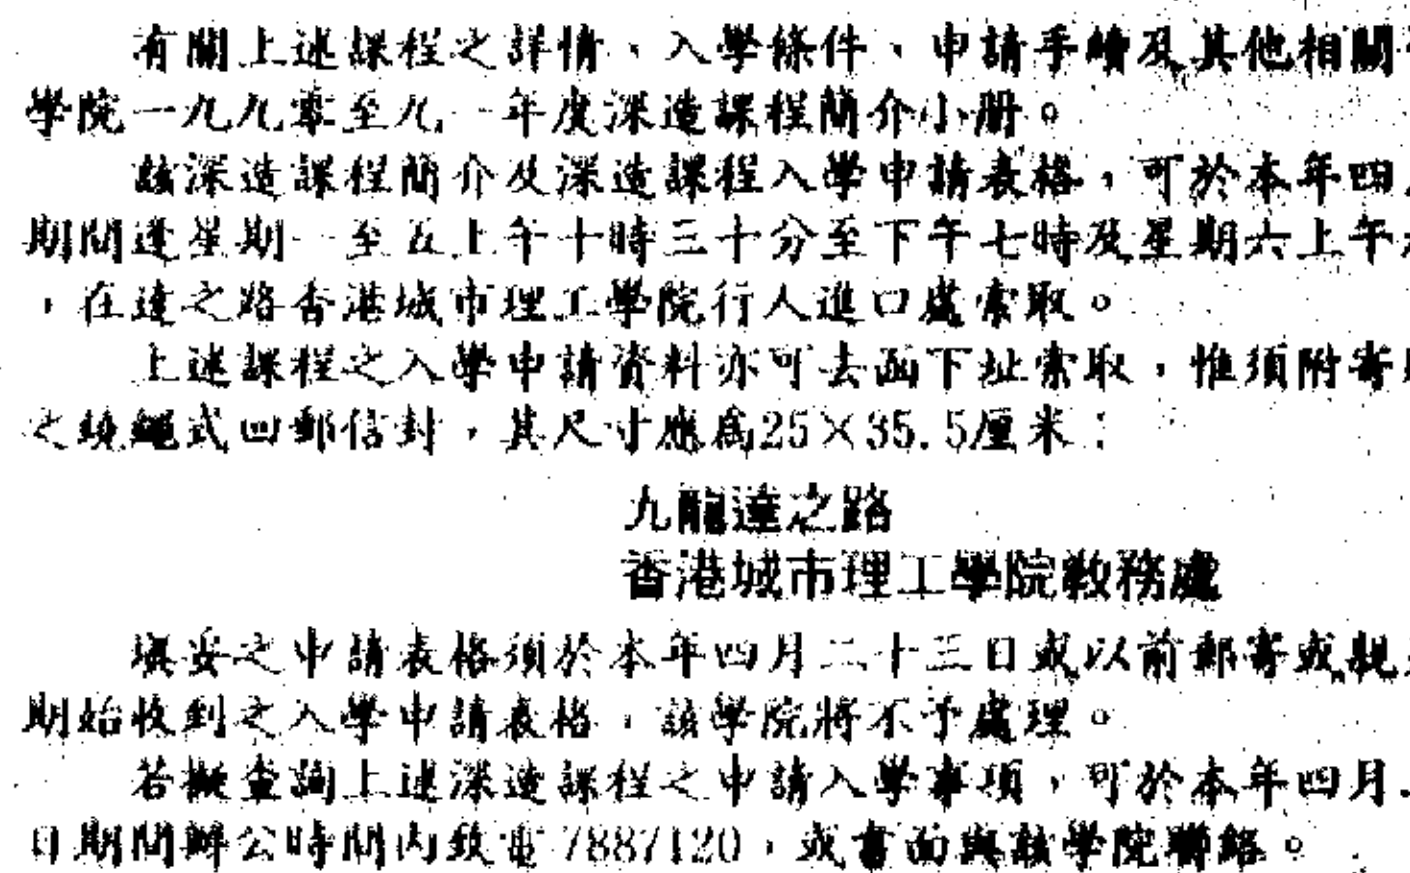 有關上述課程之詳情、入學條件、申請手續及其他相關
學院一九九零至九一年度深造課程簡介小冊。
該深造課程簡介及深造課程入學申請表格，可於本年四
期間逢星期一至五上午十時三十分至下午七時及星期六上午
，在達之路香港城市理工學院行人進口處索取。
上述課程之入學申請資料亦可去函下址索取，惟須附寄
之繞繩式回郵信封，其尺寸應為25×35.5厘米：
九龍達之路
香港城市理工學院教務處
填妥之申請表格須於本年四月二十三日或以前郵寄或親
期始收到之入學申請表格，該學院將不予處理。
若擬查詢上述深造課程之申請入學事項，可於本年四月
日期間辦公時間內致電7887120，或書面與該學院聯絡。